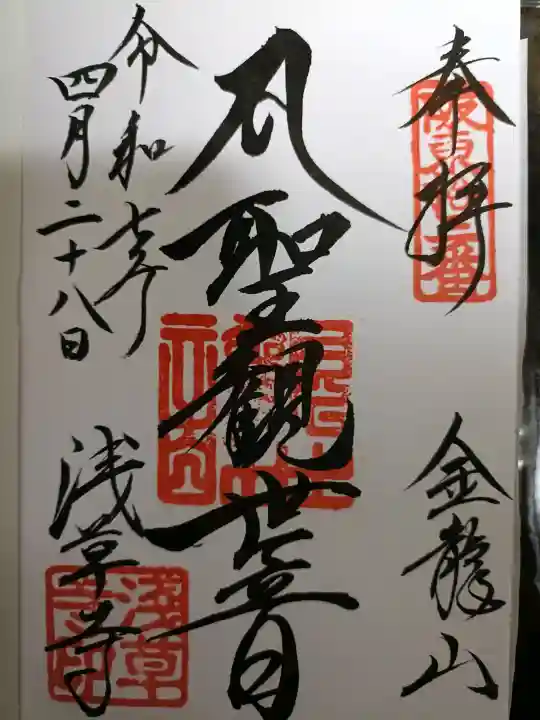 奉拝
金龍山
聖観世音
令和七年
四月二十八日
浅草寺
淺草寺印